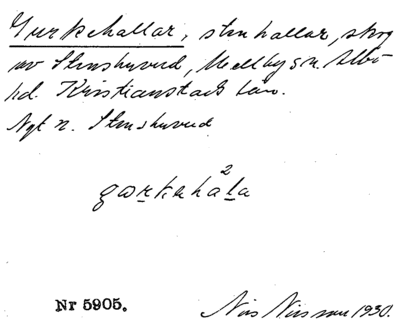 Gurkehallar, stenhallar, skog
nv Stenshuvud, Mellby sn. Albo
hd. Kristianstads län.
Ngt n. Stenshuvud
gwrkaha²la
Nr 5905.
Nils Nilsson 1930.